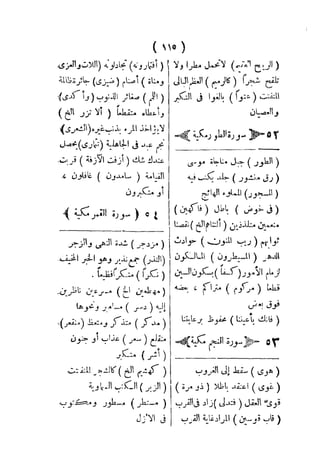 ( ١١٥ )
( الريح العقيم ) لا تحمل مطرا ولا
تلقح شجرا ( كالرميم ) العظم البالى
المتفتت ( عتوا ) بالغوا فى التكبر
والعصيان
٥٢ سورة الطور مكية
( الطور ) جبل مناجاة موسى
( رق منشور ) جلد يكتب فيه
( المسجور ) المملوء الهائج
( فى خوض ) باطل ( فاكهين )
متنعمين متلذذين ( ألتناهم الخ ) نقصنا
ثوابهم ( ريب المنون ) حوادث
الدهر ( المسيطرون ) المالكون
لزمام الأمور ( كسفا ) بسكون السين
قطعا ( مركوم ) متراكم بعضه
فوق بعض
( فانك بأعيننا ) محفوظ برعايتنا
٥٣ سورة النجم مكية
( هوى ) سقط إلى الغروب
( غوى ) اعتقد باطلا ( ذو مرة )
قوى العقل ( فتدلى ) زاد فى القرب
( قاب قوسين ) المراد غاية القرب
( أفتمارونه ) تجادلونه ( اللات والعزى
ومناة ) أصنام ( ضيزى ) جائرة ظالمة
( اللمم ) صغائر الذنوب ( وأكدى )
وأعطاه متقطعا ( ألا تزر الخ )
لا يؤاخذ المرء بذنب غيره ( الشعرى )
نجم عبد فى الجاهلية ( تتمارى ) يحصل
عندك شك ( أزفت الآزفة ) قربت
القيامة ( سامدون ) غافلون
أو متكبرون
٥٤ سورة القمر مكية
( مزدجر ) شدة النهى والزجر
( النذر ) جمع نذير وهو الخبر المخيف
( نكرا ) منكرا فظيعا .
( مهطعين الخ ) مسرعين ناظرين
إليه ( دسر ) مسامير ونحوها
( مدكر ) متذكر ومتعظ ( منقعر )
منقلع ( سعر ) عذاب أو جنون
( أشر ) متكبر
( كهشيم الخ ) كالشجر المتفتت
( الزبر ) الكتب السماوية
( مستطر ) مسطور ومكتوب
فى الأزل